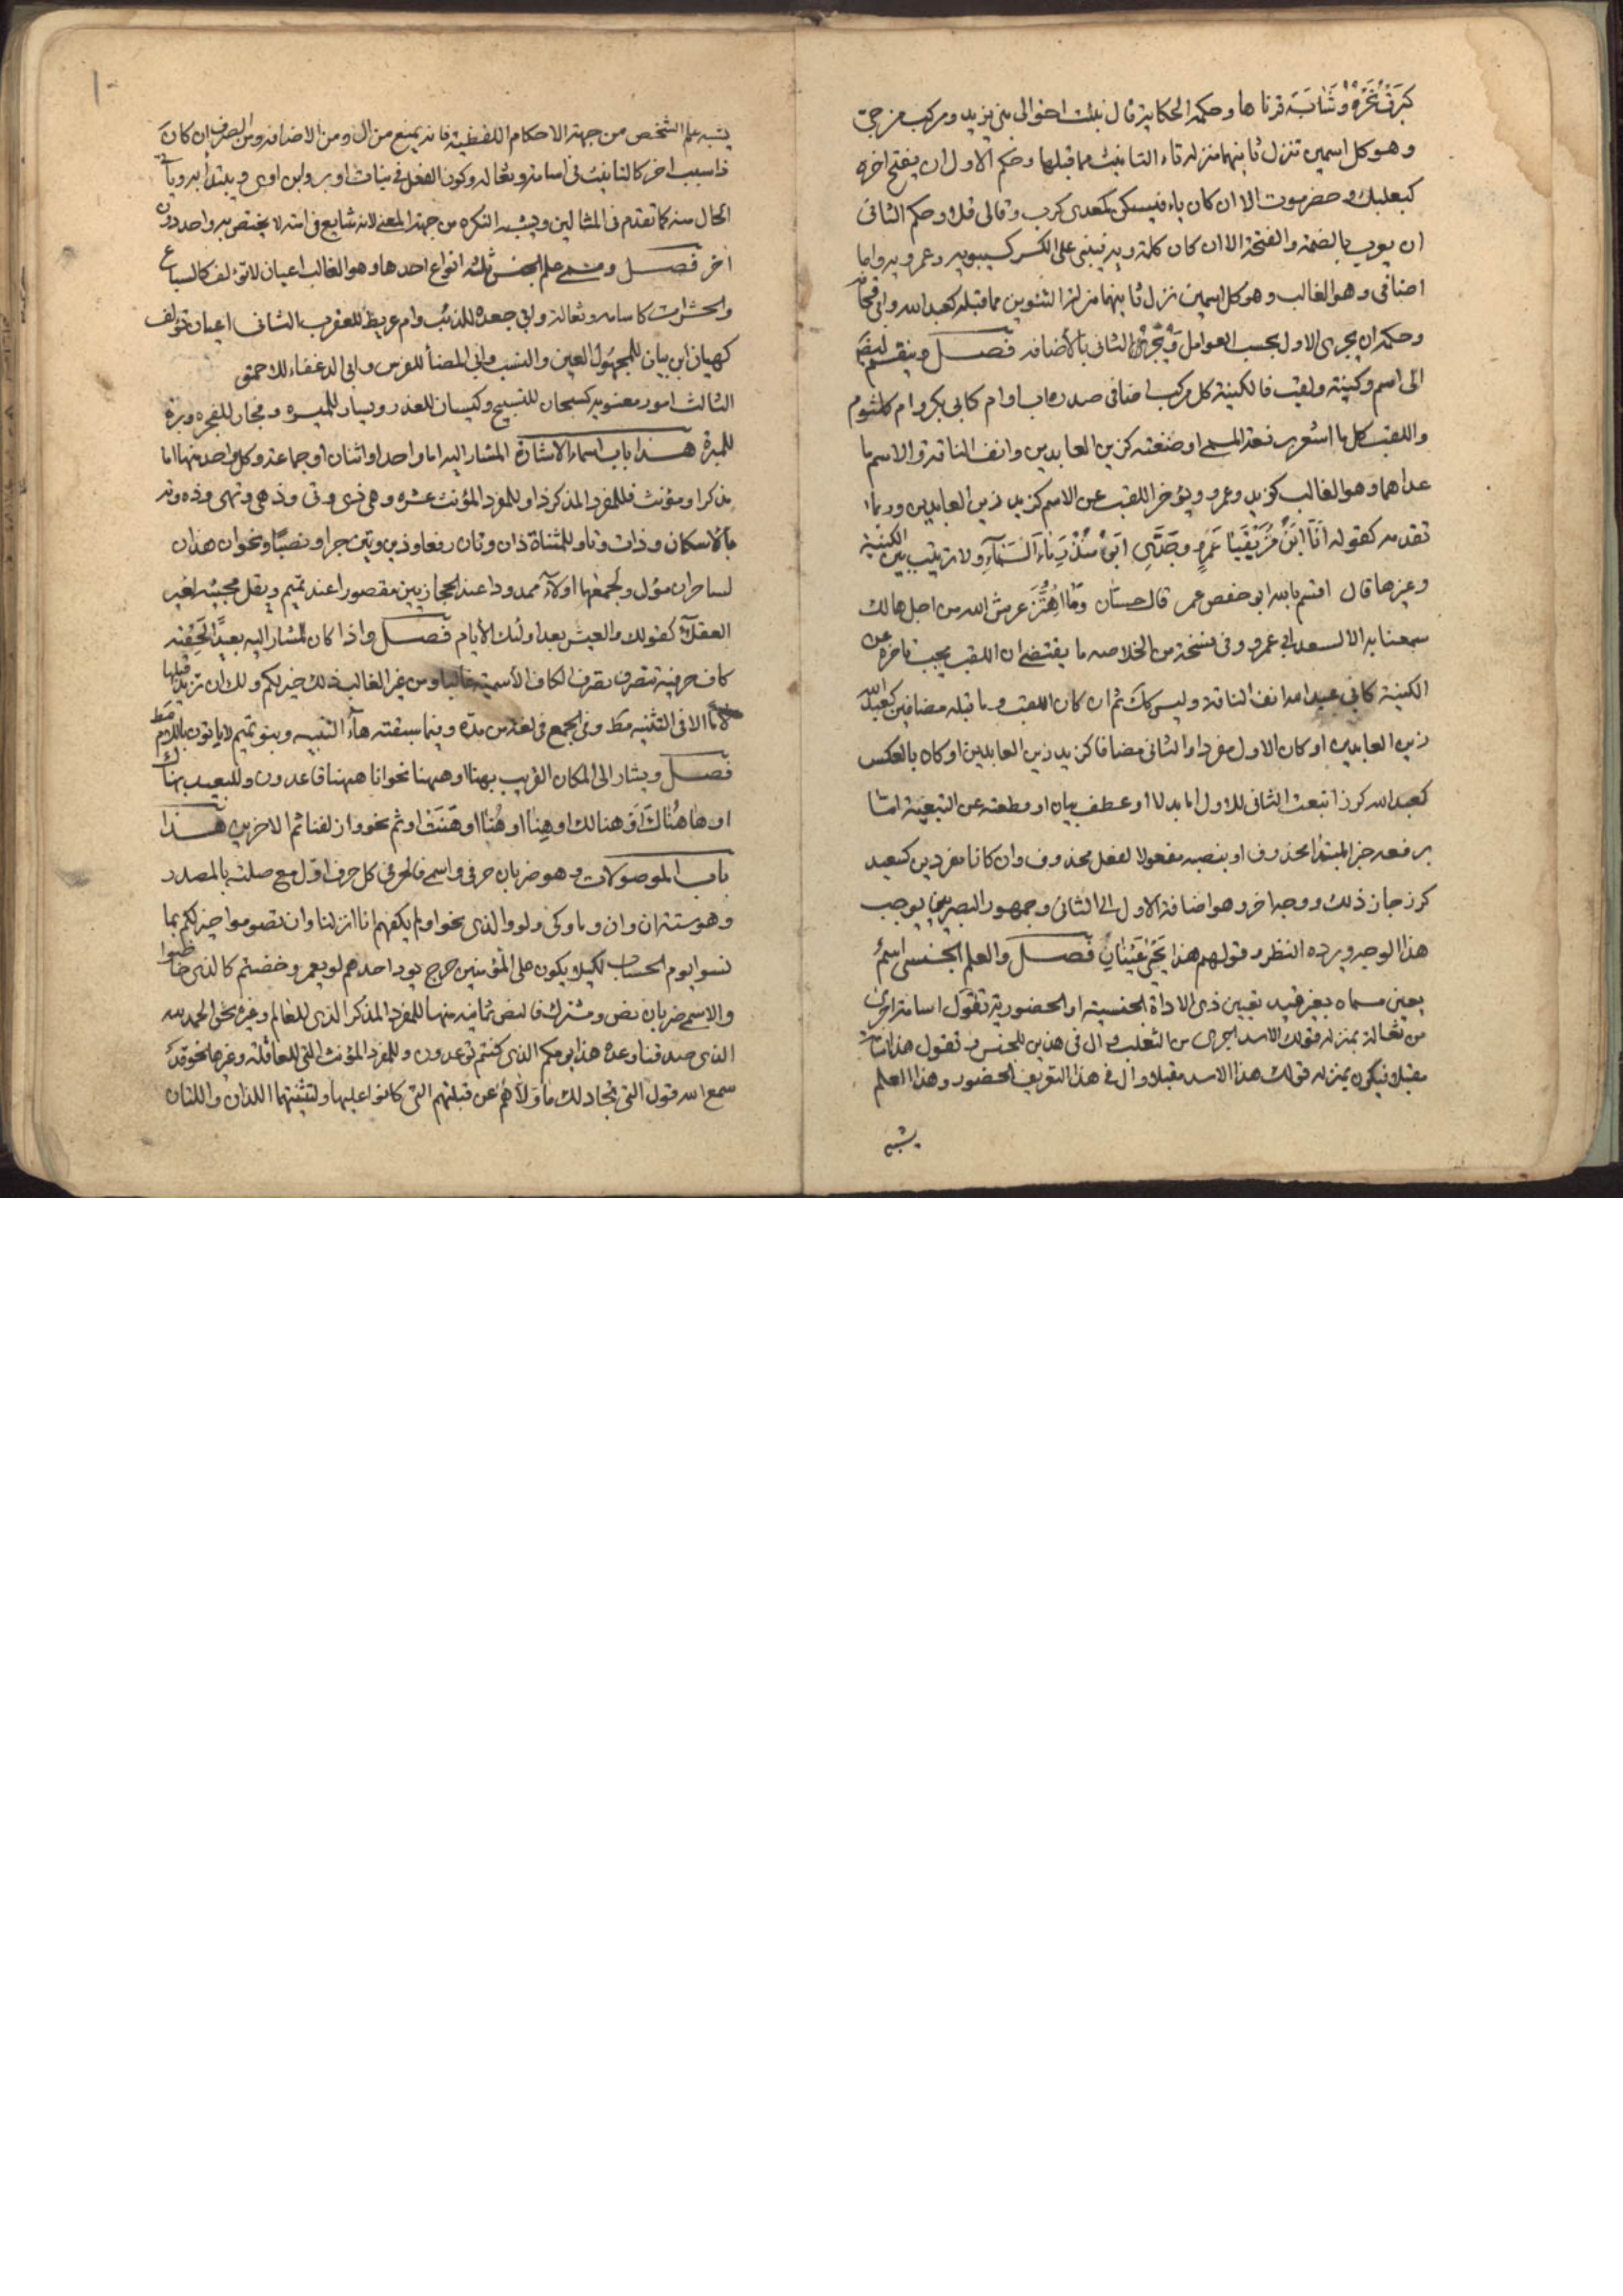 كبَرَقَ نَحْرُهُ وَشَابَ قرناها وحكمه الحكاية قال نبئت اخوالى بنى يزيد ومركب مزجى
وهو كل اسمين تنزل ثانيهما منزلة تاء التانيث مما قبلها وحكم الاول ان يفتح اخره
كبعلبك وحضرموت الا ان كان ياء فيسكن كمعدى كرب وقالى قلا وحكم الثانى
ان يعرب بالضمة والفتحة الا ان كان كلمة ويه فيبنى على الكسر كسيبويه وعمرويه واما
اضافى وهو الغالب وهو كل اسمين نزل ثانيهما منزلة التنوين مما قبله كعبد الله وابى قحافة
وحكمه ان يجرى الاول بحسب العوامل وَيُجَرَّ الثانى بالأضافه فصل وينقسم ايضا
الى اسم وكنية ولقب فالكنية كل مركب اضافى صدره اب او ام كابى بكر وام كلثوم
واللقب كل ما اشعر برفعة المسمى او ضعته كزين العابدين وانف الناقة والاسم ما
عداهما وهو الغالب كزيد وعمرو ويؤخر اللقب عن الاسم كزيد زين العابدين وربما
تقدمه كقوله أَنَا ابْنُ مُزَيْقِيَا عَمْرٍو وجَدِّى ابُوهُ مُنْذِرٌ مَاءُ السَّمَآءِ ولا ترتيب بين الكنية
وغيرها قال اقسم بالله ابو حفص عمر قال حسّان ومَا اهْتَزَّ عرش الله من اجل هالك
سمعنا به الا لسعد ابى عمرو وفى نسخة من الخلاصه ما يقتضى ان اللقب يجب تاخره عن
الكنية كابى عبد الله انف الناقة وليس كك ثم ان كان اللقب وما قبله مضافين كعبد الله
زين العابدين او كان الاول مفردا والثانى مضافا كزيد زين العابدين او كان بالعكس
كعبد الله كرز اتبعت الثانى للاول اما بدلا او عطف بيان او قطعته عن التبعية امّا
برفعه خبر المبتدأ محذوف او بنصبه مفعولا لفعل محذوف وان كانا مفردين كسعيد
كرز جاز ذلك ووجه اخر وهو اضافة الاول الى الثانى وجمهور البصريين يوجب
هذا الوجه ويرده النظر وقولهم هذا يَحْيَى عَيْنَانِ فصل والعلم الجنسى اسمٌ
يعين مسماه بغير قيد تعيين ذى الاداة الجنسية او الحضورية تقول اسامة اجرى
من ثعالة بمنزلة قولك الاسد اجرى من الثعلب وال فى هذين للجنس وتقول هذا اسامة
مقبلا فيكون بمنزلة قولك هذا الاسد مقبلا وال فى هذا التعريف الحضور وهذا العلم
يشبه
يشبه علم الشخص من جهة الاحكام اللفظية فانه يمنع من ال ومن الاضافه ومن الصرف ان كان
ذا سبب اخر كالتانيث فى اسامة وثعالة وكوزن الفعل فى بنات اوبر وابن اوى ويبتدأ به وياتى
الحال منه كما تقدم فى المثالين ويشبه النكره من جهة المعنى لانه شايع فى امته لا يختص به واحد دون
اخر فصل ومسمى علم الجنس ثلثة انواع احدها وهو الغالب اعيان لا تؤلف كالسباع
والحشرات كاسامه وثعالة وابى جعده للذئب وام عريط للعقرب الثانى اعيان تؤلف
كهيان ابن بيان للمجهول العين والنسب وابى المضأ للفرس وابى الدغفاء للاحمق
الثالث امور معنويه كسبحان للتسبيح وكيسان للغدر ويسار للميسره وفجار للفجره وبرة
للمبرة هذا باب اسماء الاشارة المشار اليه اما واحد او اثنان او جماعة وكل واحد منها اما
مذكر او مؤنث فللمفرد المذكر ذا وللمفرد المؤنث عشره وهى ذى وتى وذهى وتهى وذه وته
بالاسكان وذات وتا وللمثناة ذان وتان رفعا وذين وتين جرا ونصبًا ونحو ان هذان
لساحران مؤل ولجمعهما اولآء ممدودا عند الحجازيين مقصورا عند تميم ويقل مجيئه لغير
العقلآء كقولك والعيش بعد اولئك الأيام فصل واذا كان المشار اليه بعيدًا لَحِقَتْه
كاف حرفية تتصرف تصرف الكاف الأسمية غالبا ومن غير الغالب ذلك خير لكم ولك ان تزيد قبلها
لامًا الا فى التثنيه مط وفى الجمع فى لغة من مدّه وفيما سبقته هآء التنبيه وبنو تميم لا ياتون باللام مط
فصل ويشار الى المكان القريب بهنا او ههنا نحو انا ههنا قاعدون وللبعيد بهناك
او هاهُنَاكَ اَو هنالك او هِنّا او هَُنّا او هَنَّتْ او ثم نحو وازلفنا ثم الاخرين هذا
باب الموصولات وهو ضربان حرفى واسمى فالحرفى كل حرف اول مع صلته بالمصدر
وهو ستة ان وان وما وكى ولو والذى نحو اولم يكفهم انا انزلنا وان تصوموا خير لكم بما
نسوا يوم الحساب لكيلا يكون على المؤمنين حرج يود احدهم لو يعمر وخضتم كالذى خاضوا
والاسمى ضربان نص ومشترك فالنص ثمانيه منها للمفرد المذكر الذى للعالم وغيره نحو الحمد لله
الذى صدقنا وعده هذا يومكم الذى كنتم توعدون وللمفرد المؤنث التى للعاقلة وغيرها نحو قد
سمع الله قول التى تجادلك ما وَلّاهُمْ عن قبلتهم التى كانوا عليها ولتثنيتهما اللذان واللتان